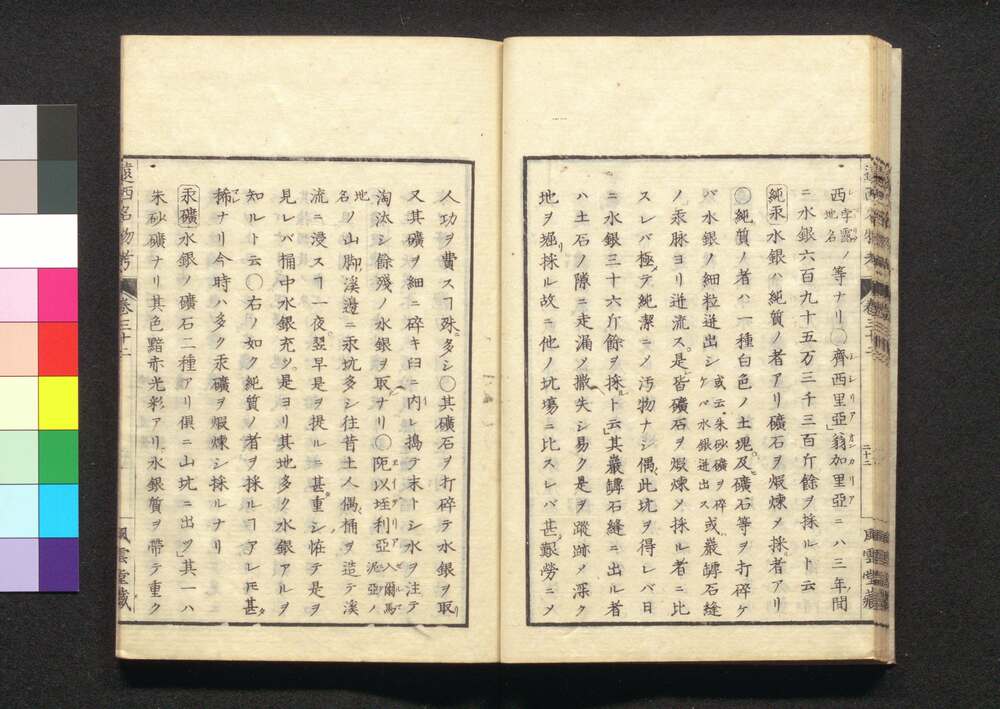 西字露ノ等ナリ〇齊西里亞翁加里亞ニハ三年間
地名
ニ水銀六百九十五万三千三百斤餘ヲ採ルト云
純汞水銀ハ純質ノ者アリ礦石ヲ煆煉メ採者アリ
〇純質ノ者ハ一種白色ノ土塊及礦石等ヲ打碎ケ
バ水銀ノ細粒迸出シ或云朱砂礦ヲ碎ケバ水銀迸出ス或巖罅石縫
ノ汞脉ヨリ迸流ス是皆礦石ヲ煆煉メ採ル者ニ比
スレバ極テ純潔ニメ汚物ナシ偶此坑ヲ得レバ日
ニ水銀三十六斤餘ヲ採ルト云其巖罅石縫ニ出ル者
ハ土石ノ隙ニ走漏メ撒失シ易ク是ヲ蹤跡メ深ク
地ヲ堀採ル故ニ他ノ坑場ニ比スレバ甚艱勞ニメ
二十二
風雲堂藏
人功ヲ費スヿ殊多シ〇其礦石ヲ打碎テ水銀ヲ取
又其礦ヲ細ニ碎キ臼ニ内レ搗テ末トシ水ヲ注テ
淘汰シ餘殘ノ水銀ヲ取ナリ〇阨以垤利亞入爾馬泥亞ノ
地名ノ山脚溪邊ニ汞坑多シ往昔土人偶桶ヲ造テ溪
流ニ浸スヿ一夜翌早是ヲ提ルニ甚重シ恠テ是ヲ
見レバ桶中水銀充ツ是ヨリ其地多ク水銀アルヲ
知ルト云〇右ノ如ク純質ノ者ヲ採ルヿアレ𪜈甚
稀ナリ今時ハ多ク汞礦ヲ煆煉シ採ルナリ
汞礦水銀ノ礦石二種アリ俱ニ山坑ニ出ツ其一ハ
朱砂礦ナリ其色黯赤光彩アリ水銀質ヲ帶テ重ク
遠西名物考 卷三十二
風雲堂藏